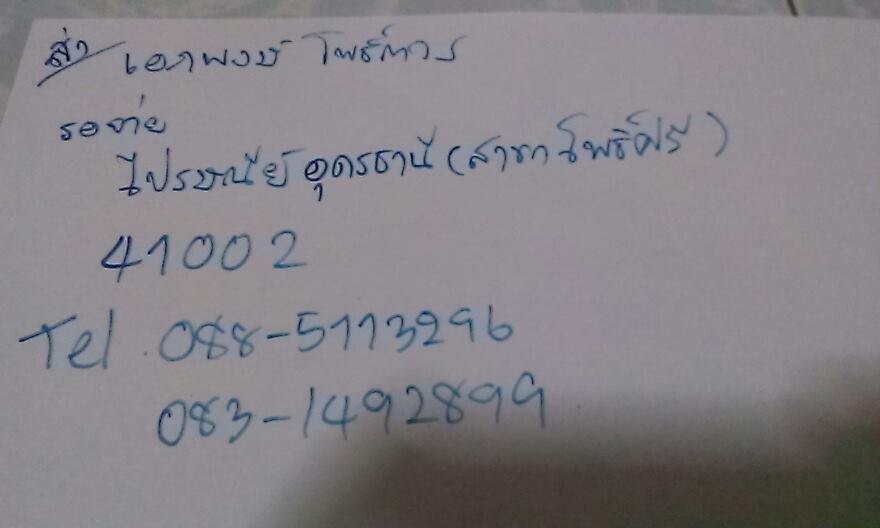 ส่ง เอกพงษ์ โพธิ์ถาวร
รอจ่าย
ไปรษณีย์อุดรธานี (สาขาโพธิ์ศรี)
41002
Tel. 088-5113296
083-1492899